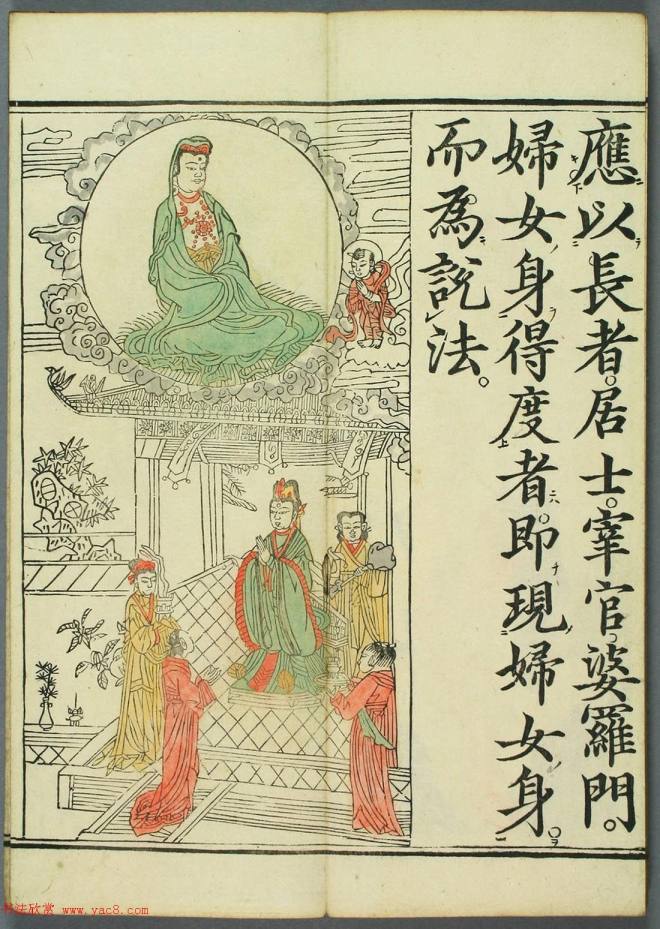 應以長者。居士。宰官。婆羅門。
婦女身得度者。即現婦女身。
而為說法。
书法欣赏 www.yac8.com